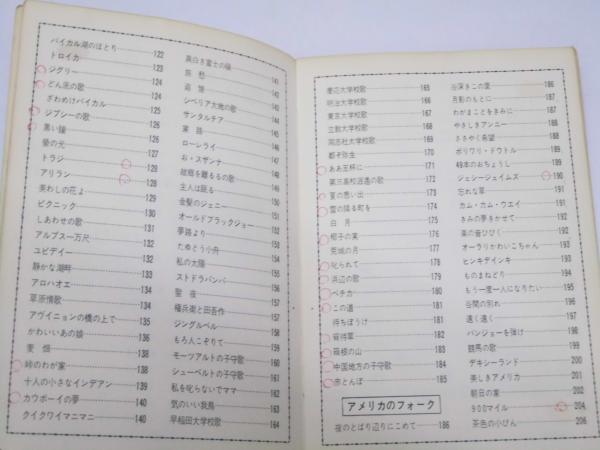 バイカル湖のほとり 122
トロイカ 123
ジグリー 124
どん底の歌 124
さわめけバイカル 125
ジプシーの歌 126
黒い瞳 126
蛍の光 127
トラジ 128
アリラン 128
美わしの花よ 129
ピクニック 130
しあわせの歌 131
アルプス一万尺 132
ユピデイー 132
静かな湖畔 133
アロハオエ 134
草原情歌 134
アヴイニョンの橋の上で 135
かわいいあの娘 136
麦畑 138
峠のわが家 138
十人の小さなインデアン 139
カウボーイの夢 140
クイクワイマニマニ 140
真白き富士の嶺 141
旅愁 141
追憶 142
シベリア大地の歌 142
サンタルチア
家路
ローレライ
お・スザンナ
故郷を離るるの歌
主人は眠る
金髪のジェニー
オールドブラックジョー
夢路より
たゆとう小舟
私の太陽
ストドラパンパ
聖夜
権兵衛と田吾作
ジングルベル
もろ人こぞりて
モーツアルトの子守歌
シューベルトの子守歌
私を叱らないでママ 162
気のいい我鳥 163
早稲田大学校歌 164
慶応大学校歌 165
明治大学校歌 166
東京大学校歌 167
立教大学校歌 168
同志社大学校歌 169
都ぞ弥生 170
ああ玉杯に 171
第三高校逍遥の歌 172
夏の思い出 173
雪の降る町を 174
白月 175
椰子の実 176
荒城の月 177
叱られて 178
浜辺の歌 179
ペチカ 180
この道 181
待ちぼうけ 181
宵待草 182
箱根の山 183
中国地方の子守歌 184
赤とんぼ 185
アメリカのフォーク
夜のとばり辺りにこめて 186
谷深きこの里 186
月影のもとに 187
わがまことをきみに 187
やさしきアンニー 187
ささやく希望 188
ポリワリ・ドウドル 189
線本のおちょうし 189
ジェシージェイムズ 190
忘れな草 191
カム・カム・ウエイ 191
きみの夢をきかせて 192
楽の音ひびく 192
オーラリかわいこちゃん 193
ヒンキデインキ 193
ものまねどり 194
もう一度一人になりたい 194
谷間の別れ 195
遠く遠く 196
バンジョーを弾け 198
競馬の歌 199
デキシーランド 200
美しきアメリカ 201
朝日の家 202
900マイル 204
茶色の小びん 206